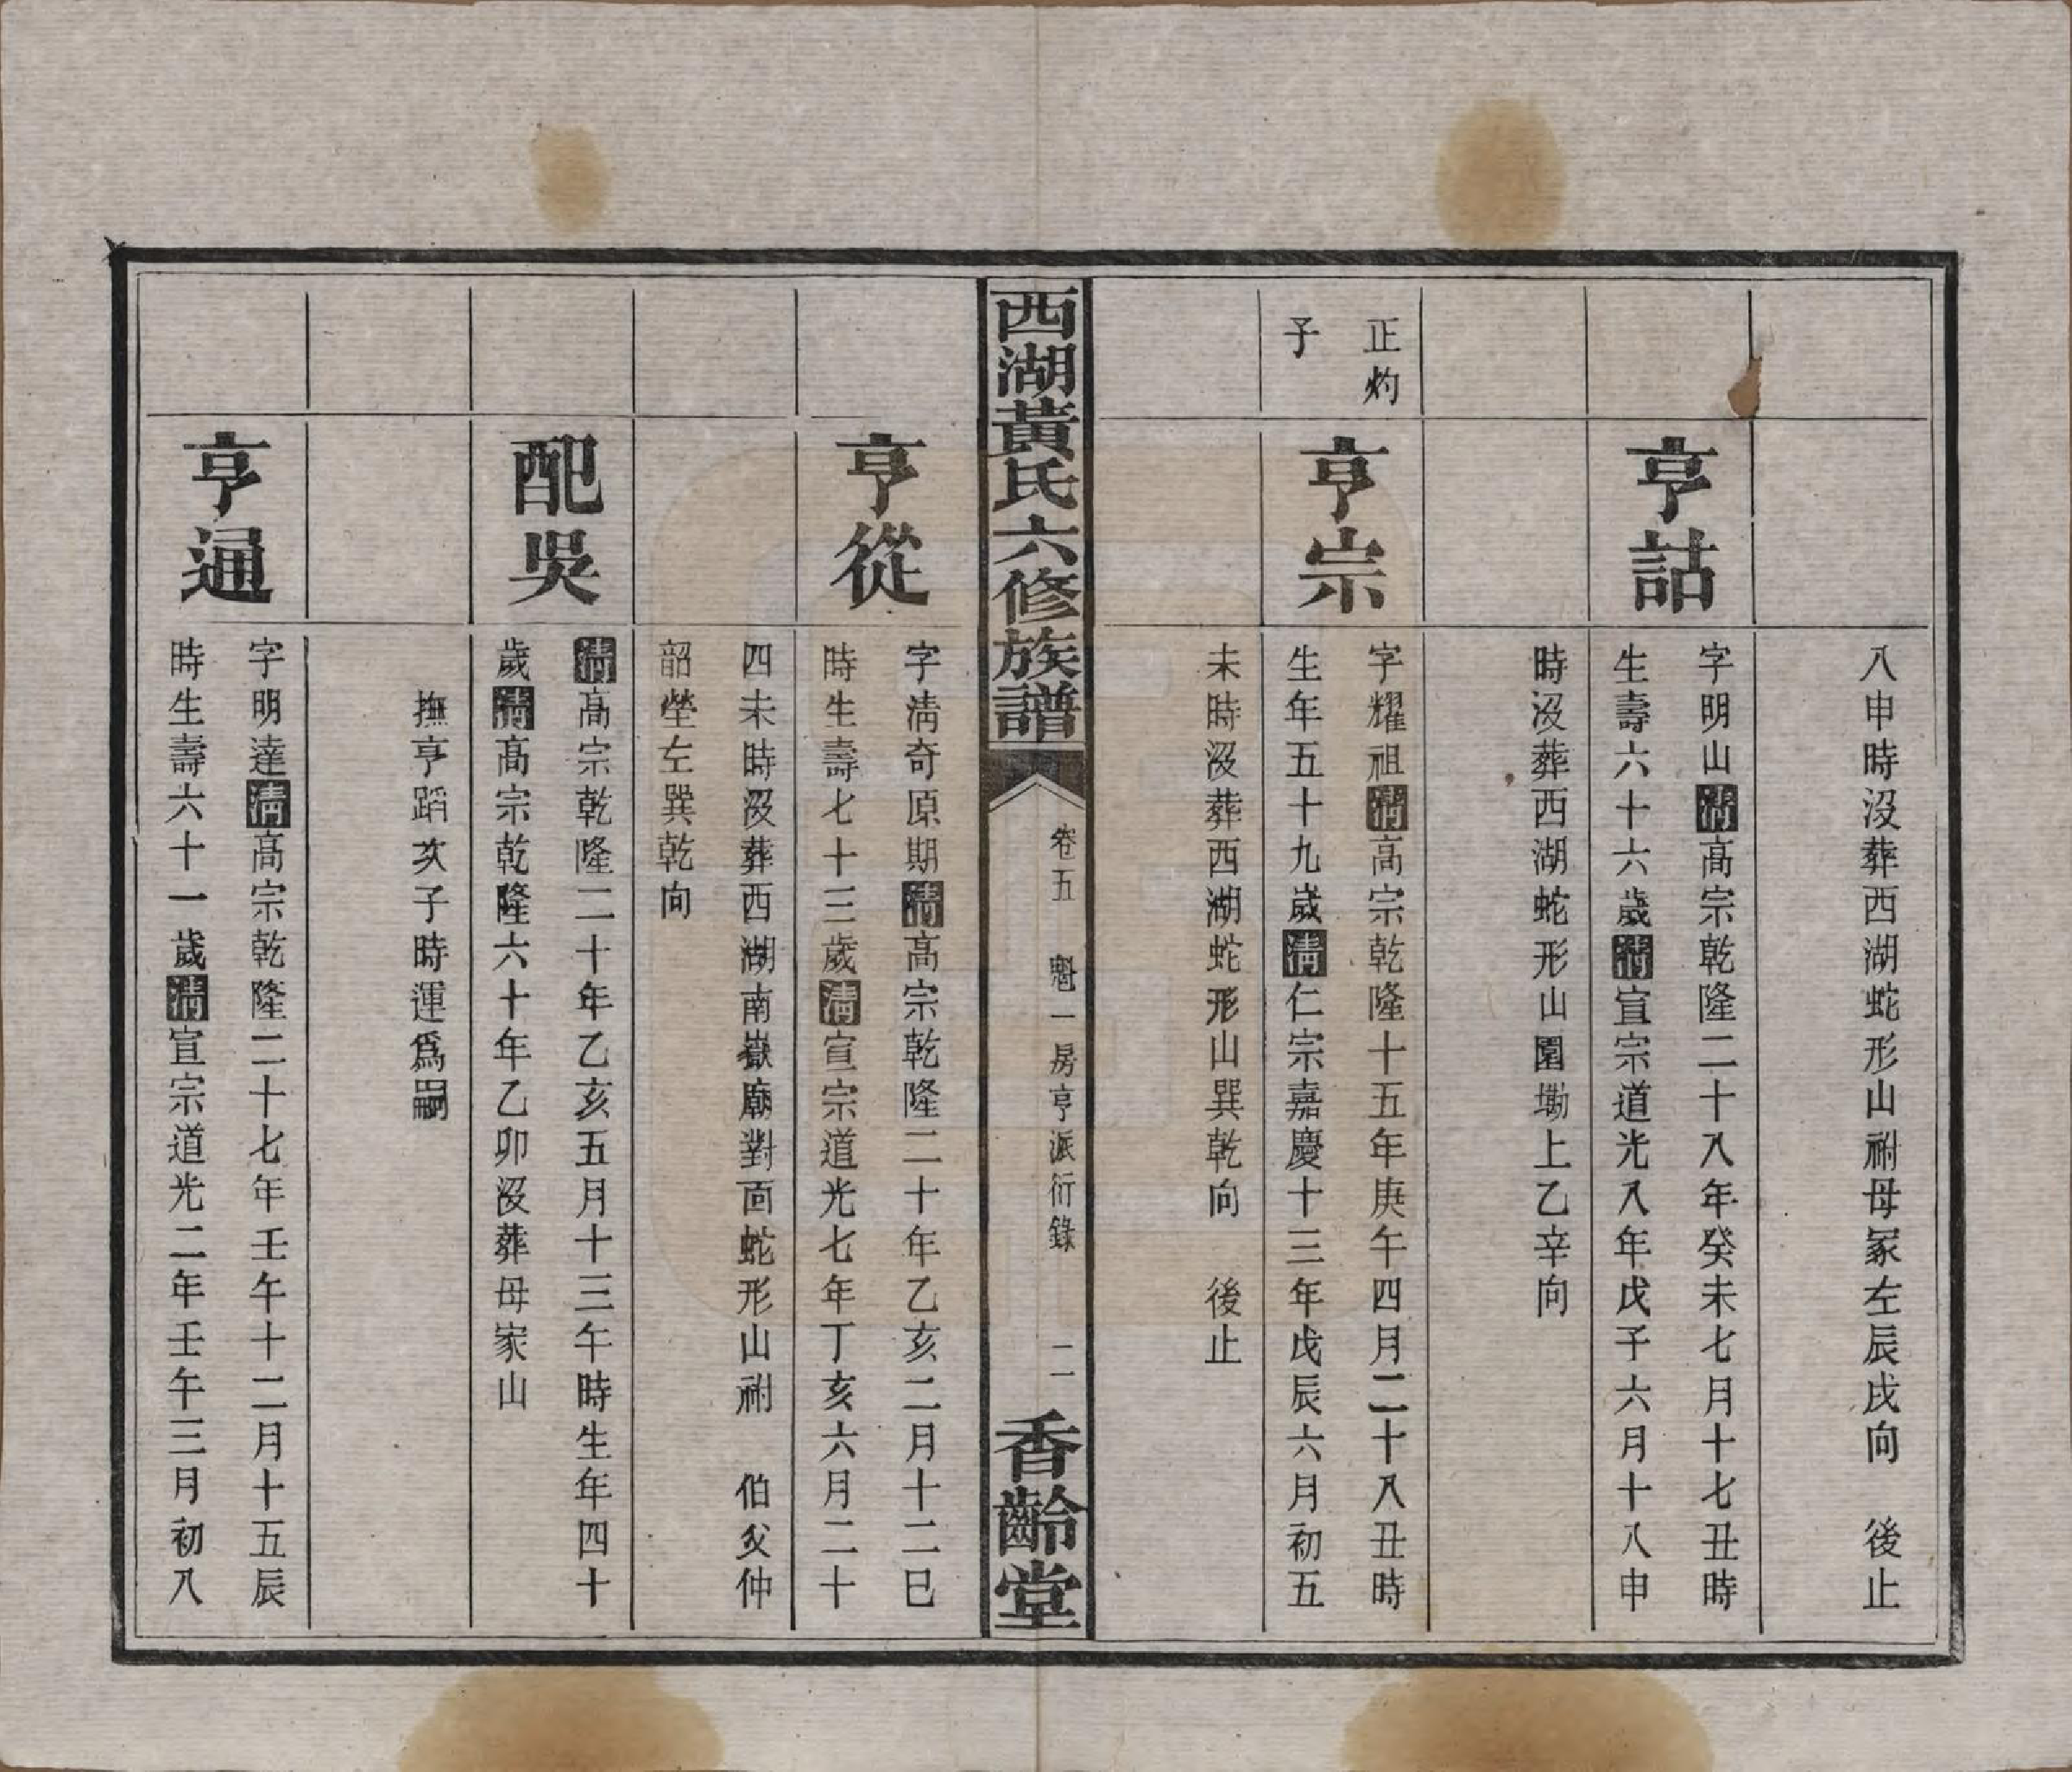 八申時沒葬西湖蛇形山祔母冢左辰戌向　後止
亨詁
字明山清高宗乾隆二十八年癸未七月十七丑時
生壽六十六歲清宣宗道光八年戊子六月十八申
時沒葬西湖蛇形山園塝上乙辛向
正灼
子
亨宗
字耀祖清高宗乾隆十五年庚午四月二十八丑時
生年五十九歲清仁宗嘉慶十三年戊辰六月初五
未時沒葬西湖蛇形山巽乾向　後止
西湖黃氏六修族譜
卷五　魁一房亨派衍錄　二
香齡堂
亨從
字清奇原期清高宗乾隆二十年乙亥二月十二巳
時生壽七十三歲清宣宗道光七年丁亥六月二十
四未時沒葬西湖南嶽廟對面蛇形山祔　伯父仲
韶塋左巽乾向
配吳
清高宗乾隆二十年乙亥五月十三午時生年四十
歲清高宗乾隆六十年乙卯沒葬母家山
撫亨蹈次子時運為嗣
亨通
字明達清高宗乾隆二十七年壬午十二月十五辰
時生壽六十一歲清宣宗道光二年壬午三月初八